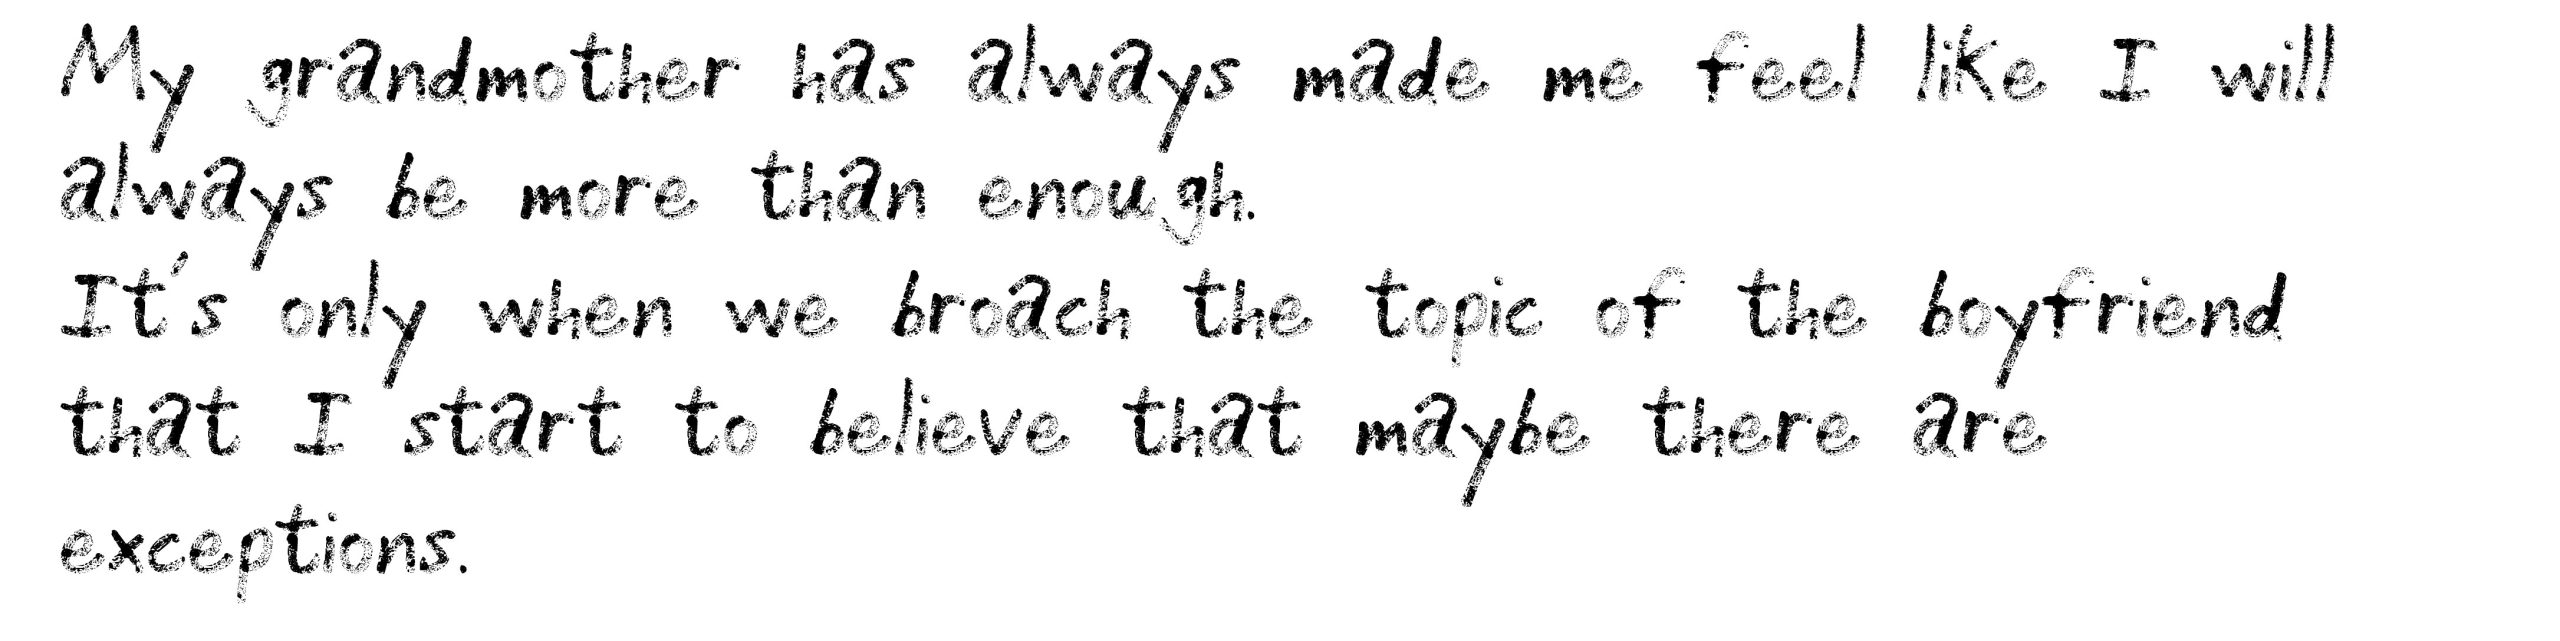 My grandmother has always made me feel like I will
always be more than enough.
It's only when we broach the topic of the boyfriend
that I start to believe that maybe there are
exceptions.